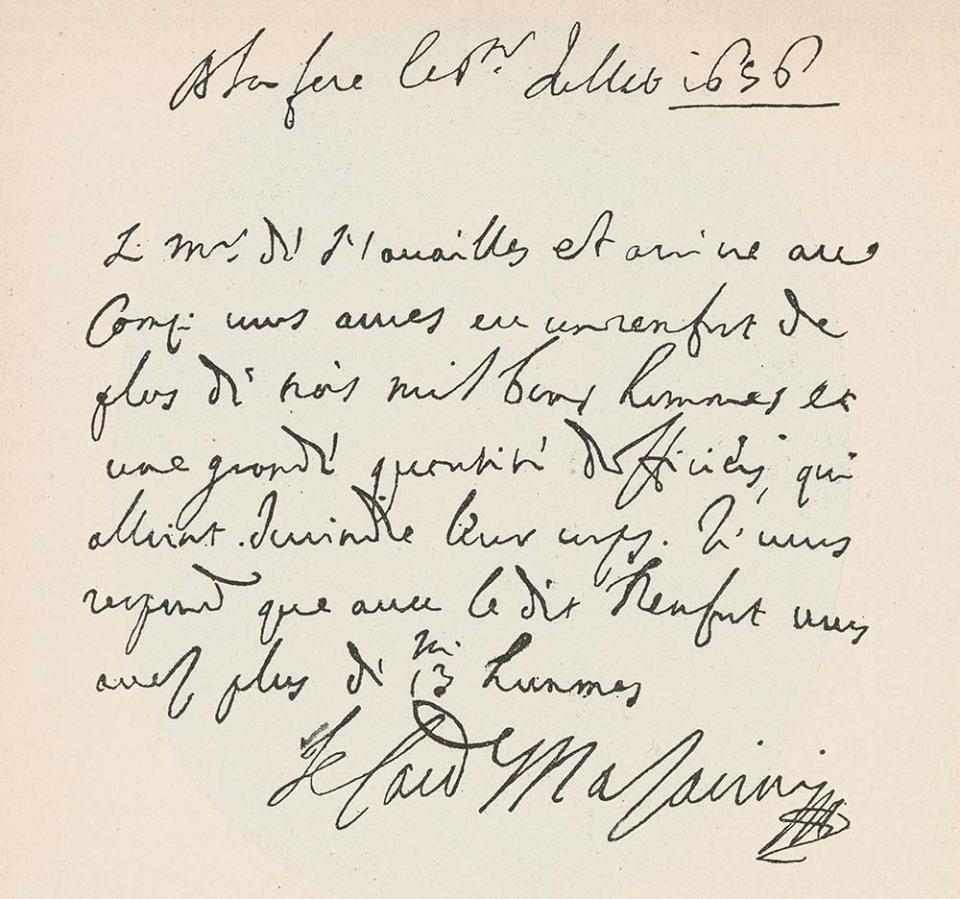 A la fere le 6.re 1656
Le Mr. de Nouailles est arrive au
Camp. vous aures eu un renfort de
plus de trois mil bons hommes et
une grande quantité d'officiers, qui
alloint Joindre leur corps. Je vous
respond que avec le dit Renfort vous
avez plus de 13 m. hommes
le Card Mazarini